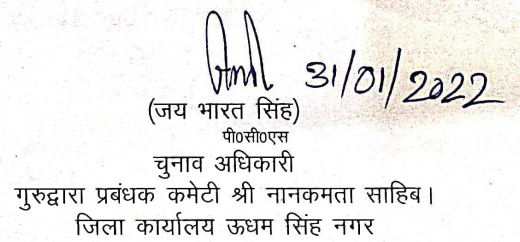 31/01/2022
(जय भारत सिंह)
पी0सी0एस
चुनाव अधिकारी
गुरुद्वारा प्रबंधक कमेटी श्री नानकमता साहिब।
जिला कार्यालय ऊधम सिंह नगर